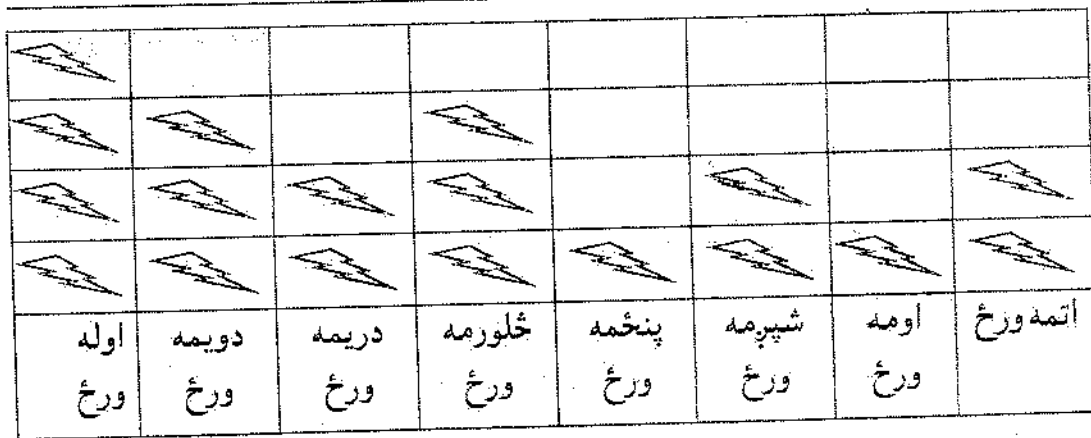 اوله
ورځ
دویمه
ورځ
دریمه
ورځ
ځلورمه
ورځ
پنځمه
ورځ
شپږمه
ورځ
اومه
ورځ
اتمه ورځ